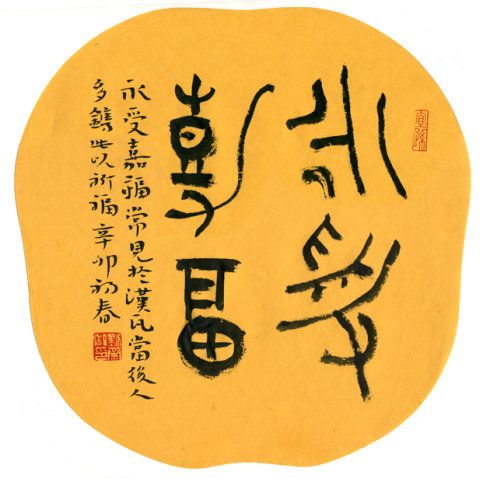 永受
嘉福
永受嘉福常見於漢瓦當後人
多鐫此以祈福辛卯初春